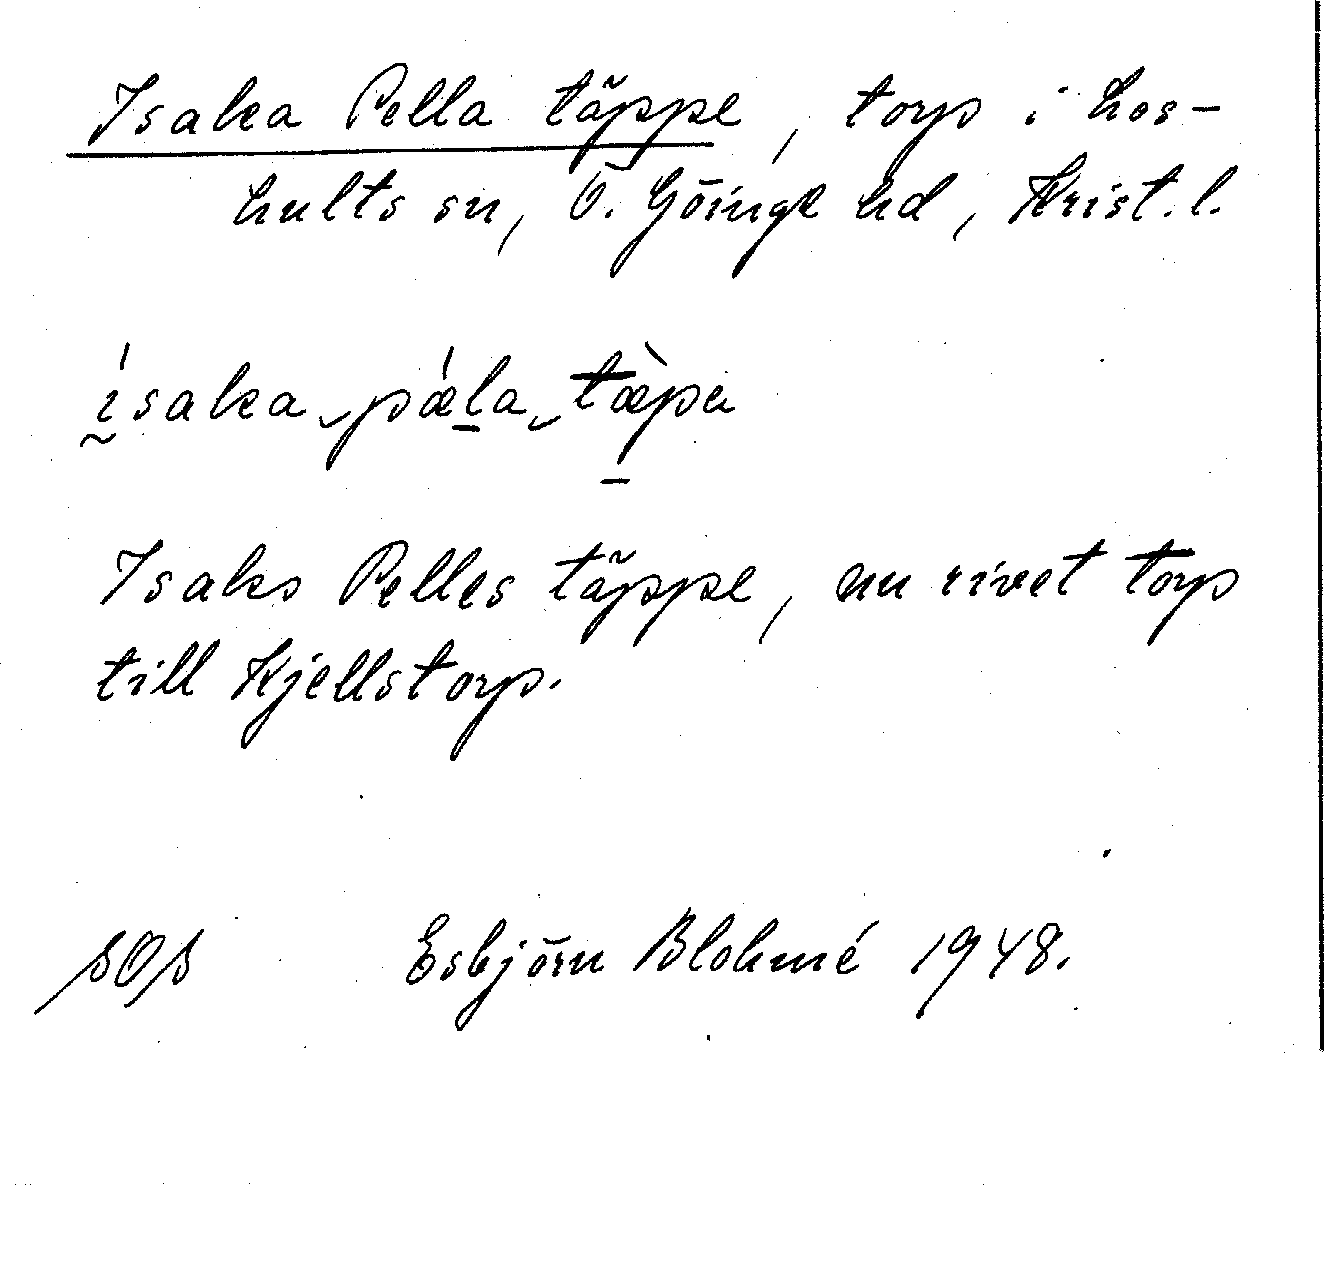 Isaka Pella täppe, torp i Los-
hults sn, Ö. Göinge hd, Krist. l.
ísaka pǽla tæ̀pa
Isaks Pelles täppe, nu rivet torp
till Kjellstorp.
SOS Esbjörn Blohmé 1948.